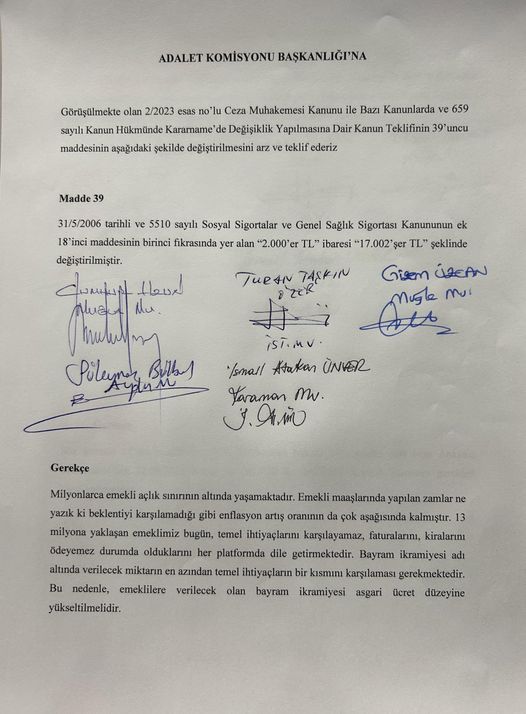 ADALET KOMİSYONU BAŞKANLIĞI'NA
Görüşülmekte olan 2/2023 esas no'lu Ceza Muhakemesi Kanunu ile Bazı Kanunlarda ve 659
sayılı Kanun Hükmünde Kararname'de Değişiklik Yapılmasına Dair Kanun Teklifinin 39'uncu
maddesinin aşağıdaki şekilde değiştirilmesini arz ve teklif ederiz
Madde 39
31/5/2006 tarihli ve 5510 sayılı Sosyal Sigortalar ve Genel Sağlık Sigortası Kanununun ek
18'inci maddesinin birinci fıkrasında yer alan “2.000'er TL” ibaresi “17.002'şer TL” şeklinde
değiştirilmiştir.
TURAN TAŞKIN
ÖZER
İST. MV.
Gizem ÖZCAN
Muğla Mv.
Süleyman Bülbül
Aydın M
İsmail Atakan ÜNVER
Karaman Mv.
Gerekçe
Milyonlarca emekli açlık sınırının altında yaşamaktadır. Emekli maaşlarında yapılan zamlar ne
yazık ki beklentiyi karşılamadığı gibi enflasyon artış oranının da çok aşağısında kalmıştır. 13
milyona yaklaşan emeklimiz bugün, temel ihtiyaçlarını karşılayamaz, faturalarını, kiralarını
ödeyemez durumda olduklarını her platformda dile getirmektedir. Bayram ikramiyesi adı
altında verilecek miktarın en azından temel ihtiyaçların bir kısmını karşılaması gerekmektedir.
Bu nedenle, emeklilere verilecek olan bayram ikramiyesi asgari ücret düzeyine
yükseltilmelidir.